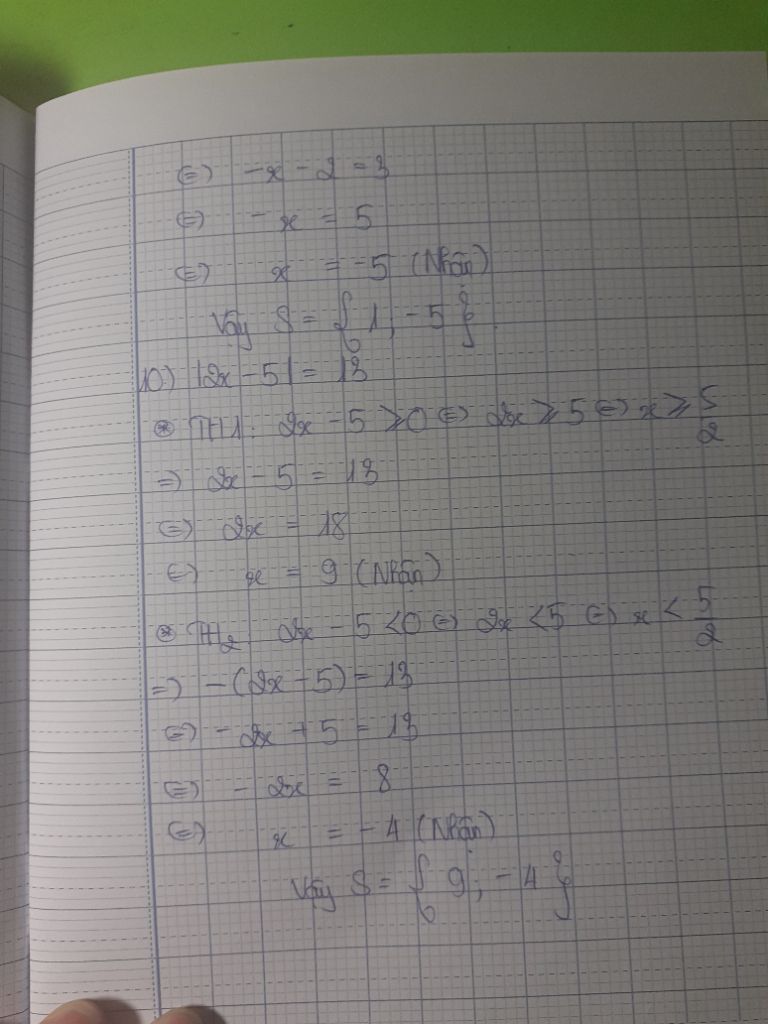 ⇔ -x - 2 = 3
⇔ -x = 5
⇔ x = -5 (Nhận)
Vậy S = { 1 ; -5 }
10) |2x - 5| = 13
⊛ TH1: 2x - 5 ⩾ 0 ⇔ 2x ⩾ 5 ⇔ x ⩾ 5/2
⇒ 2x - 5 = 13
⇔ 2x = 18
⇔ x = 9 (Nhận)
⊛ TH2 2x - 5 < 0 ⇔ 2x < 5 ⇔ x < 5/2
⇒ -(2x - 5) = 13
⇔ -2x + 5 = 13
⇔ -2x = 8
⇔ x = -4 (Nhận)
Vậy S = { 9 ; -4 }